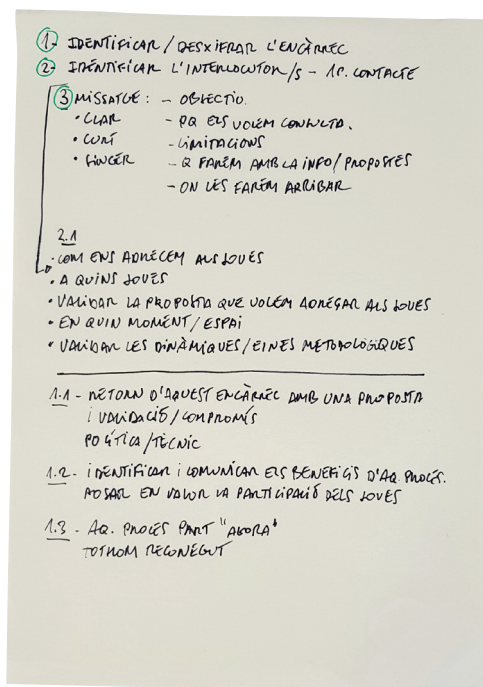 1- IDENTIFICAR/DESXIFRAR L'ENCÀRREC
2- IDENTIFICAR L'INTERLOCUTOR/S - 1R. CONTACTE
3 MISSATGE: - OBJECTIU.
• CLAR - PQ ELS VOLEM CONSULTA.
• CURT - LIMITACIONS
• SINCER - Q FAREM AMB LA INFO/PROPOSTES
- ON LES FAREM ARRIBAR
2.1
• COM ENS ADRECEM ALS JOVES
• A QUINS JOVES
• VALIDAR LA PROPOSTA QUE VOLEM ADREÇAR ALS JOVES
• EN QUIN MOMENT/ESPAI
• VALIDAR LES DINÀMIQUES/EINES METODOLÒGIQUES
1.1 - RETORN D'AQUEST ENCÀRREC AMB UNA PROPOSTA
I VALIDACIÓ/COMPROMÍS
POLÍTICA/TÈCNIC
1.2- IDENTIFICAR I COMUNICAR ELS BENEFICIS D'AQ. PROCÉS.
POSAR EN VALOR LA PARTICIPACIÓ DELS JOVES
1.3 - AQ. PROCÉS PART "AGORA"
TOTHOM RECONEGUT